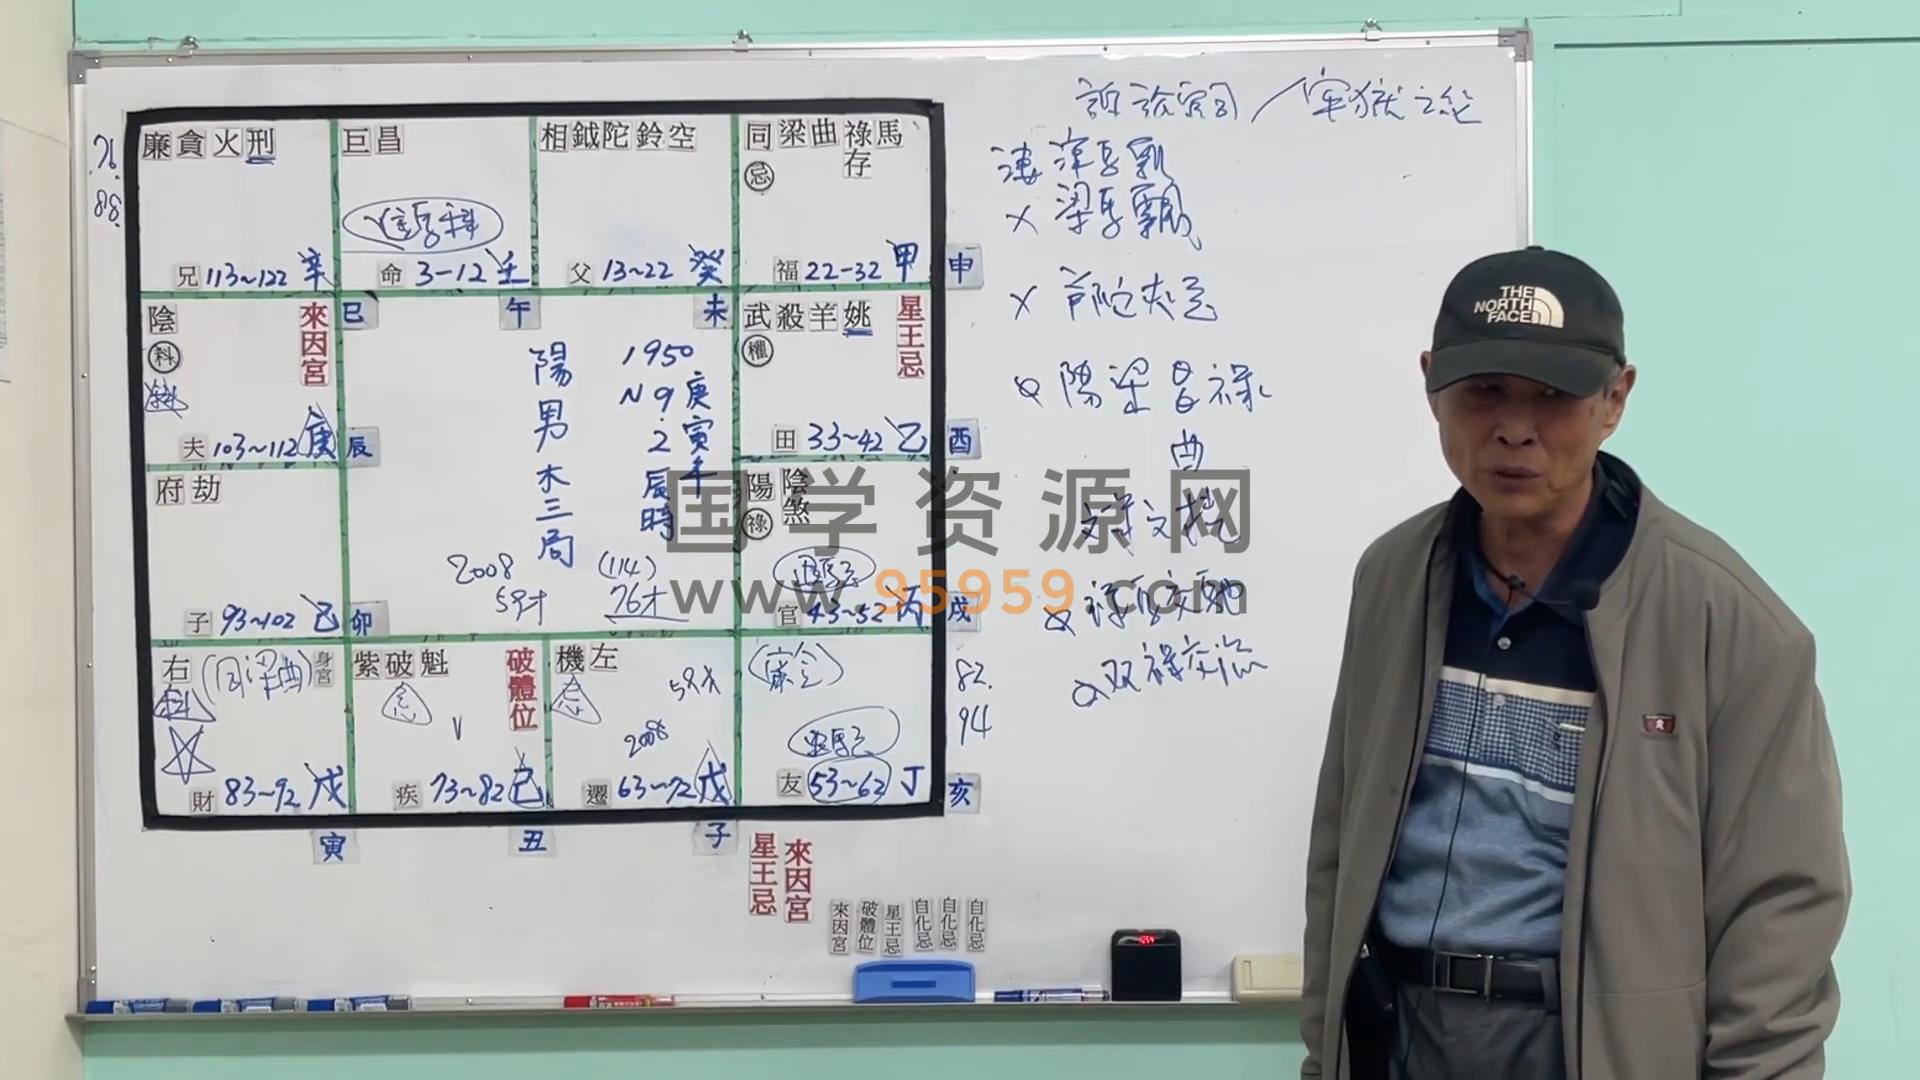 廉貪火刑
兄 113~122 辛
巨昌
命 3-12 壬
相鉞陀鈴空
父 13~22 癸
同梁曲祿存馬
忌
福 22-32 甲
申
76.
88.
陰
科
來因宮
夫 103~112 庚
巳
午
未
辰
武殺羊姚
權
星王忌
田 33~42 乙
酉
府劫
子 93~102 己
卯
陽陰煞
祿
官 43~52 丙
戌
陽男木三局
1950
庚寅年
N 9.2
辰時
2008
59才
(114)
76才
右
(同梁酉)
身宮
財 83~92 戊
寅
紫破魁
忌
破體位
疾 73~82 己
丑
機左
忌
59才
2008
遷 63~72 戊
子
友 53~62 丁
亥
82.
94
星王忌
來因宮
來因宮
破體位
星王忌
自化忌
自化忌
自化忌
牢獄之
陽梁昌祿
双祿交流
THE NORTH FACE
国学资源网
www.95959.com